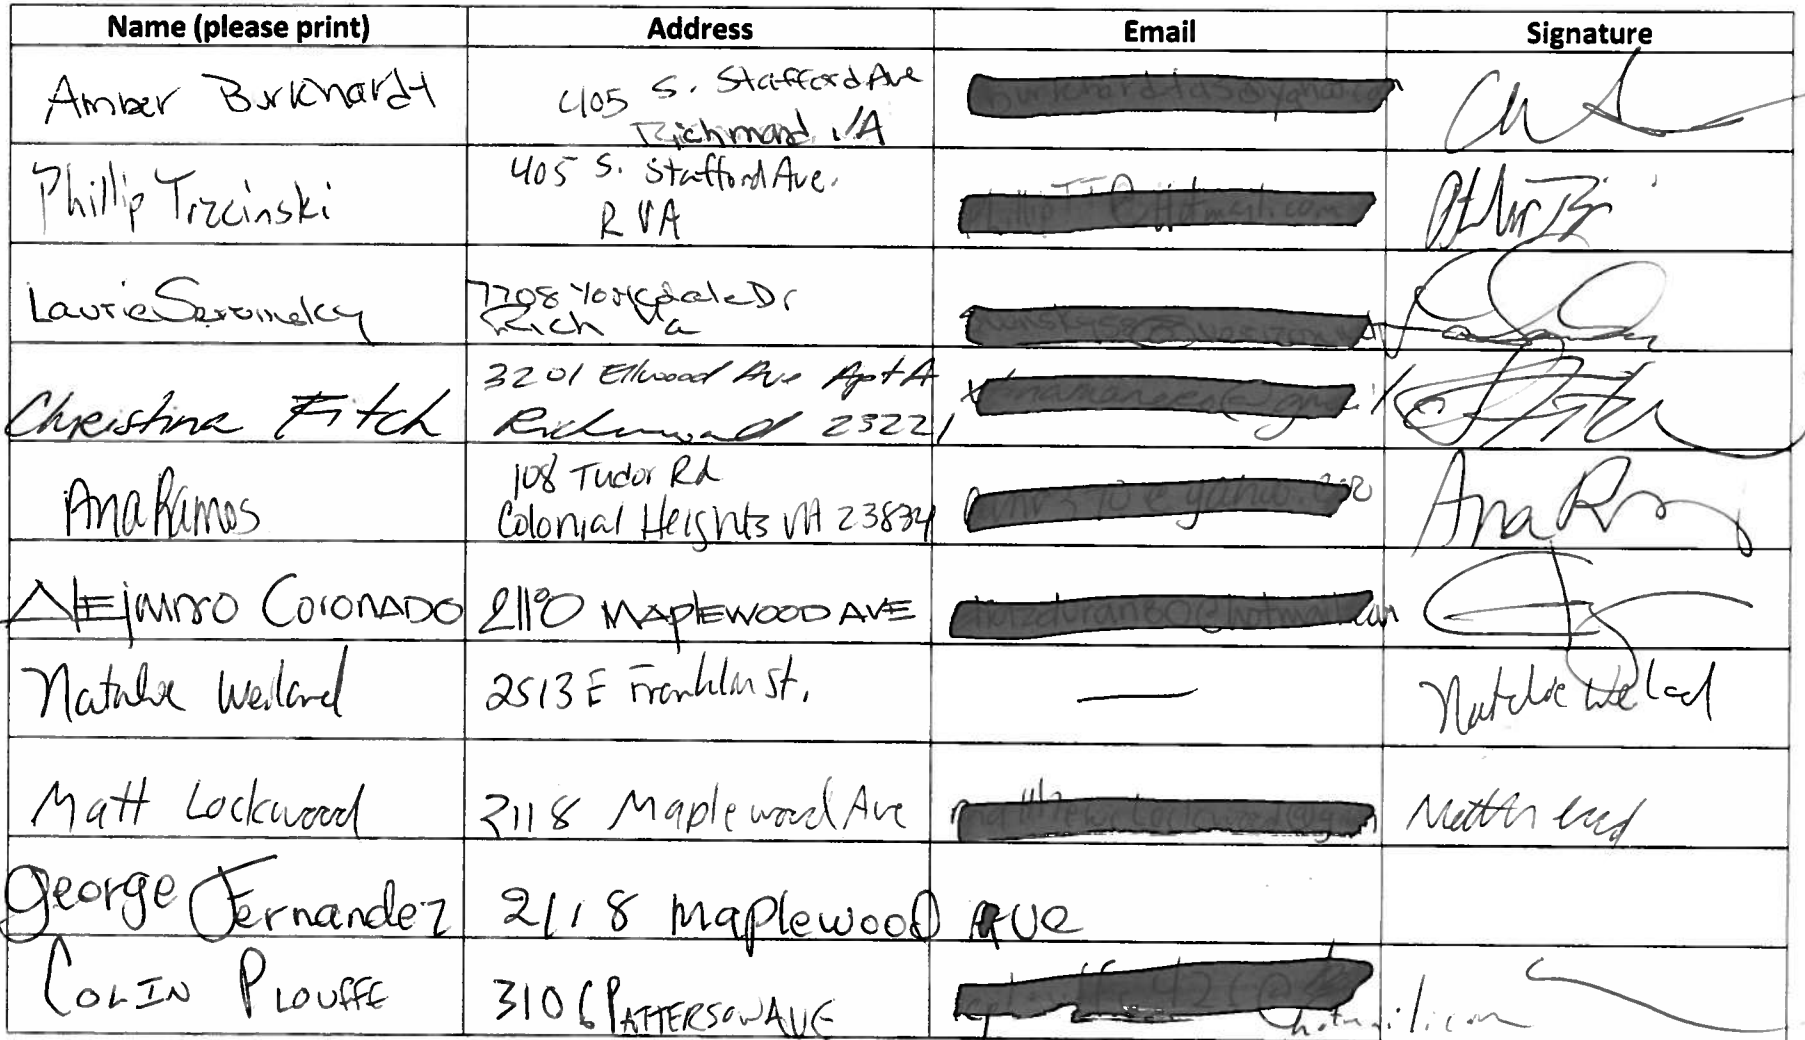 Name (please print) Address Email Signature
Amber Burkhardt 405 S. Stafford Ave
Richmond VA
Phillip Trzcinski 405 S. Stafford Ave.
RVA
Laurie 7708 Yorkdale Dr
Rich Va
Christina Fitch 3201 Ellwood Ave Apt A
Richmond 23221
Ana Ramos 108 Tudor Rd Ana
Colonial Heights VA 23834
Alejandro Coronado 2110 Maplewood Ave
Natalie Weiland 2513 E Franklin St. — Natalie Weiland
Matt Lockwood 2118 Maplewood Ave
George Fernandez 2118 Maplewood Ave
Colin Plouffe 3106 Patterson Ave
hotmail.com